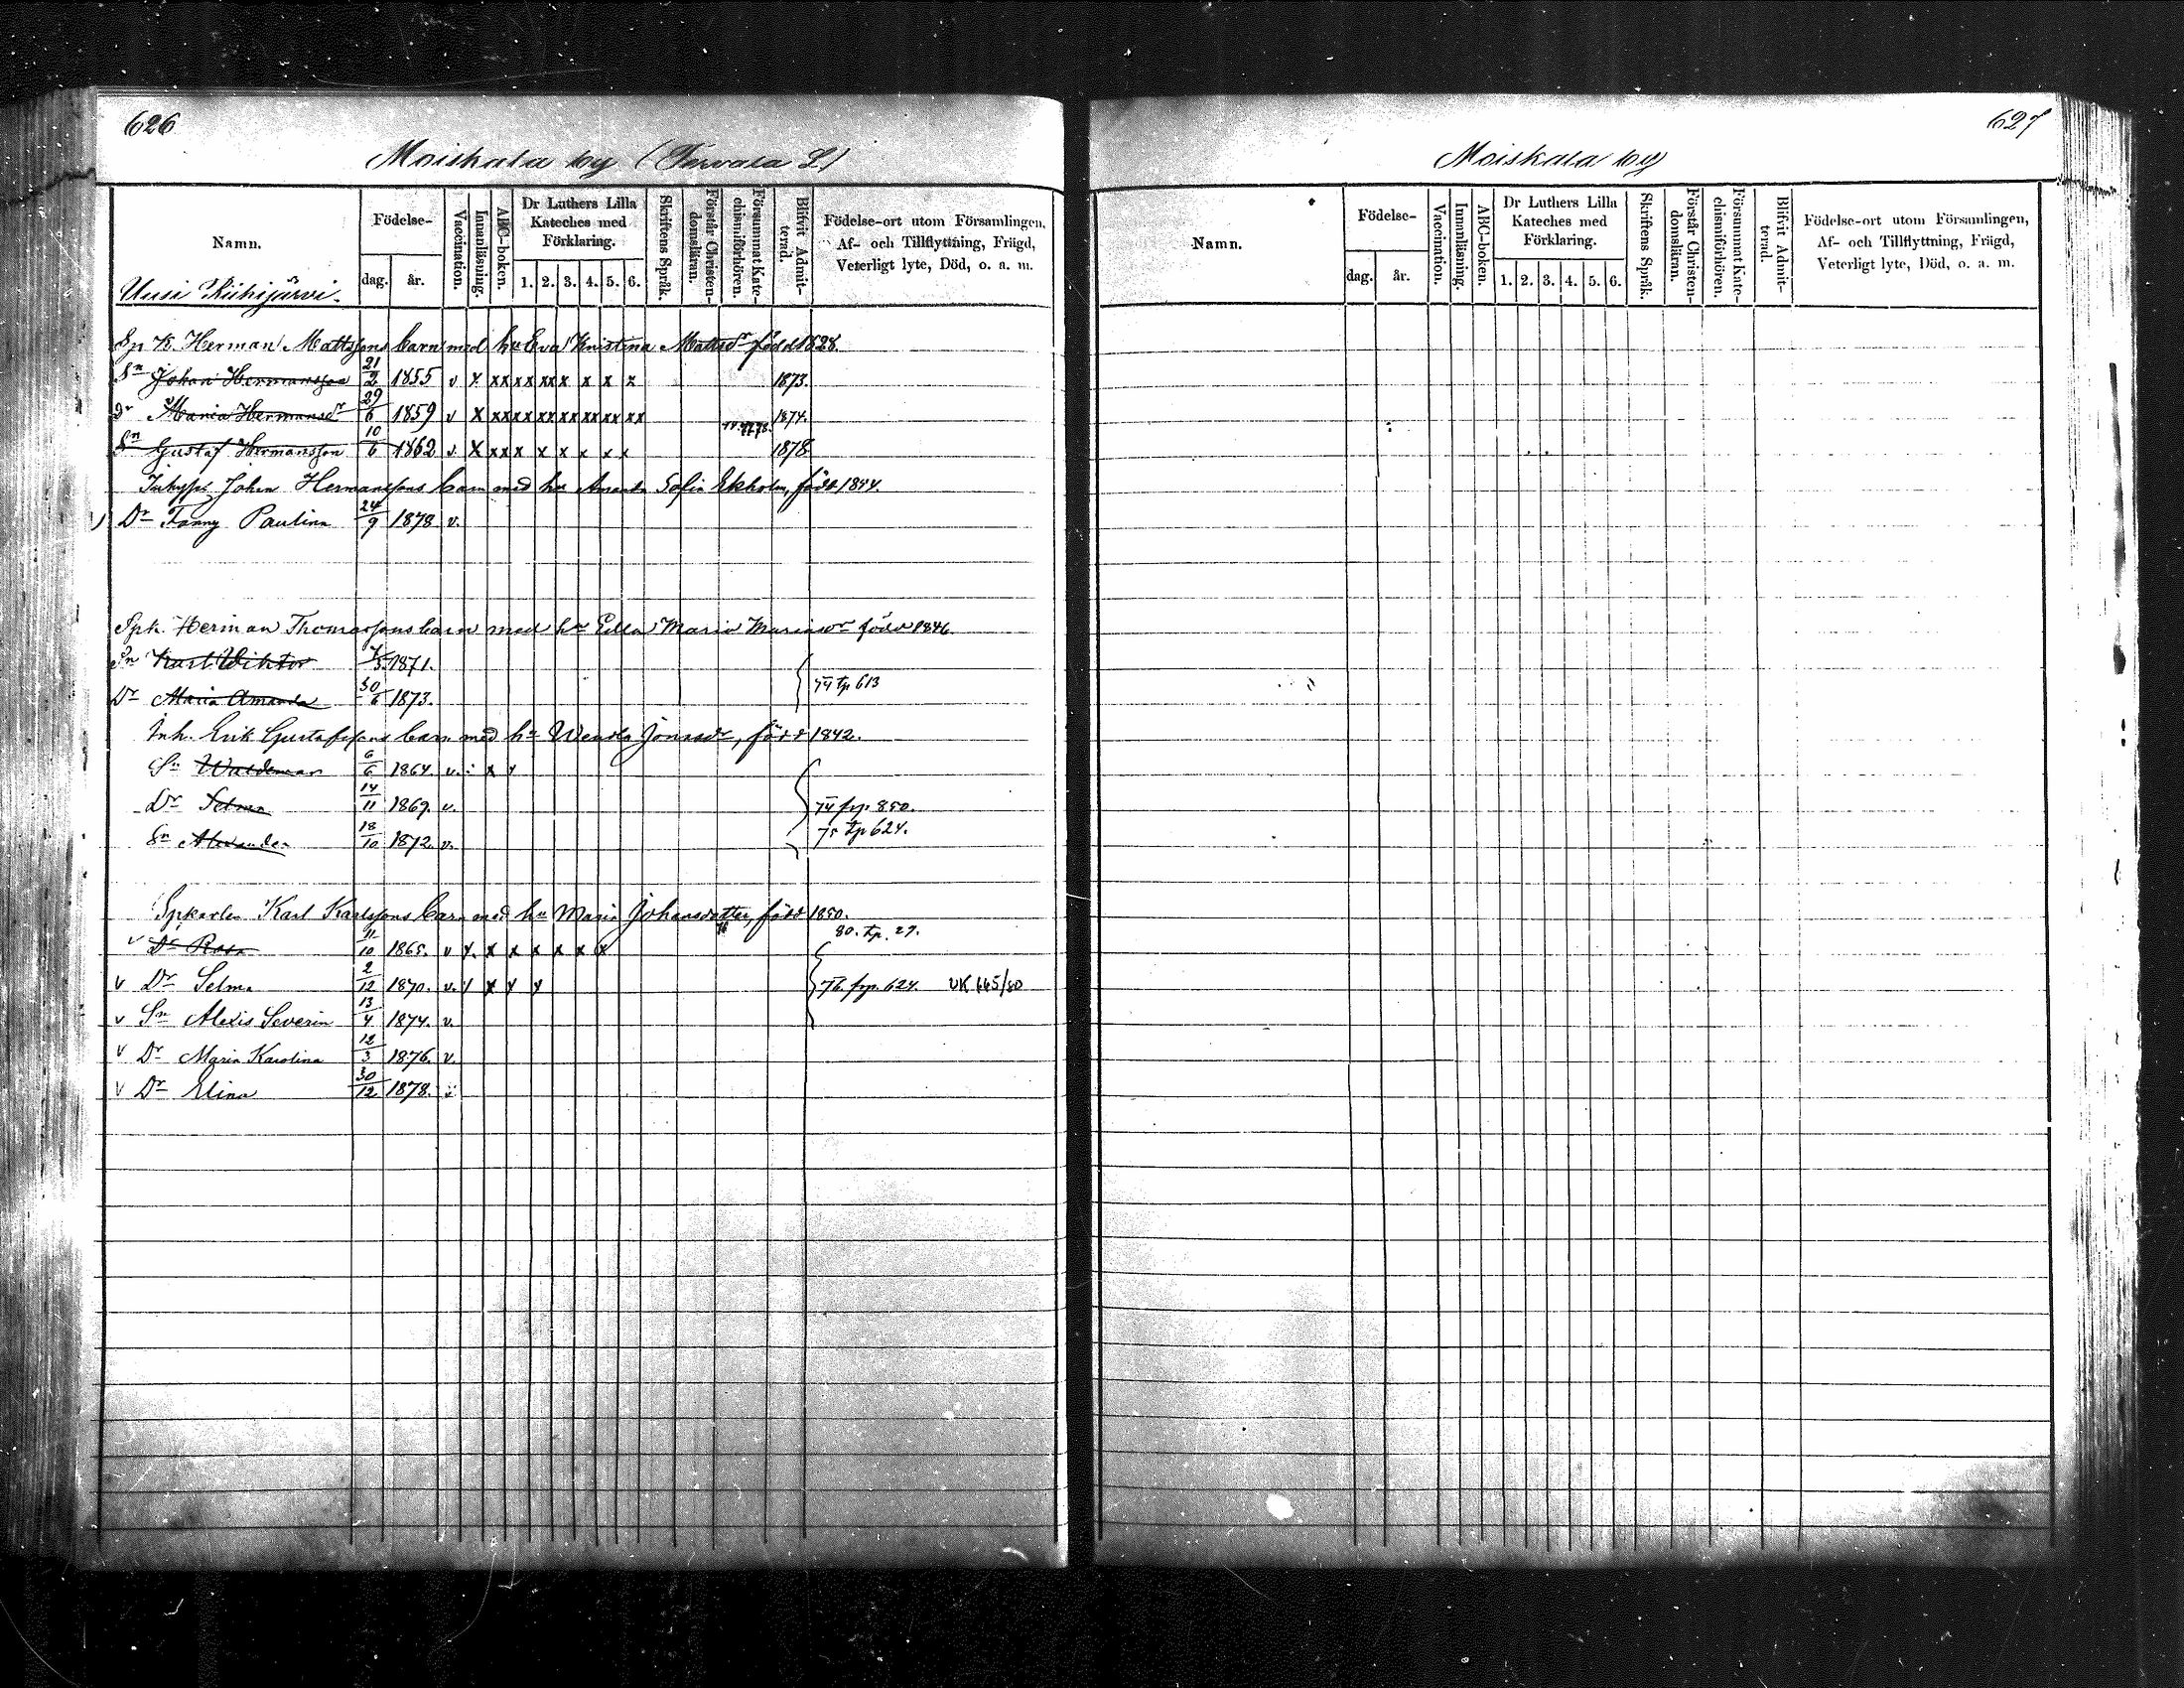 626
Moiskala by (Tervala L)
Namn.
Födelse-
dag.
år.
Vaccination.
Innanläsning.
ABC-boken.
Dr Luthers Lilla Kateches med Förklaring.
1. 2. 3. 4. 5. 6.
Skriftens Språk.
Förstår Christendomsläran.
Försummat Katechismiförhören.
Blifvit Admitterad.
Födelse-ort utom Församlingen,
Af- och Tillflyttning, Frägd,
Veterligt lyte, Död, o. a. m.
Uusi Kiihijärvi.
Sp K. Herman Mattssons barn med hu Eva Kristina Mattsdr född 1828.
Sn Johan Hermansson 21/2 1855 v x xx xx xx x x x x 1873.
Dr Maria Hermansdr 29/6 1859 v x xx xx xx xx xx xx xx 1874.
Sn Gustaf Hermansson 10/6 1862 v. x xx x x x x x x 1878
Johan Hermanssons barn med hu Amanda Sofia Ekholm, född 1844.
Dr Fanny Paulina 24/9 1878 v.
Spk. Herman Thomassons barn med hu Edla Maria född 1846.
Sn Karl Wiktor 1871.
Dr Maria Amanda 30/6 1873. 74 tp 613
Inh. Erik Gustafssons barn med hu Wenda Jonasdr, född 1842.
Sn Waldemar 6/6 1864 v. x x
Dr Selma 14/11 1869. v. 74 frp. 850.
Sn Alexander 18/10 1872. v. 75 tp 624.
Spkarlen Karl Karlssons barn med hu Maria Johansdotter, född 1850.
v Dr Rosa 11/10 1865. v x. x x x x x x 80. tp. 27.
v Dr Selma 2/12 1870. v. x x x x 76. frp. 624. UK 645/80
v Sn Alexis Severin 13/4 1874. v.
v Dr Maria Karolina 12/3 1876. v.
v Dr Elina 30/12 1878. v
627
Moiskala by
Namn.
Födelse-
dag.
år.
Vaccination.
Innanläsning.
ABC-boken.
Dr Luthers Lilla Kateches med Förklaring.
1. 2. 3. 4. 5. 6.
Skriftens Språk.
Förstår Christendomsläran.
Försummat Katechismiförhören.
Blifvit Admitterad.
Födelse-ort utom Församlingen,
Af- och Tillflyttning, Frägd,
Veterligt lyte, Död, o. a. m.